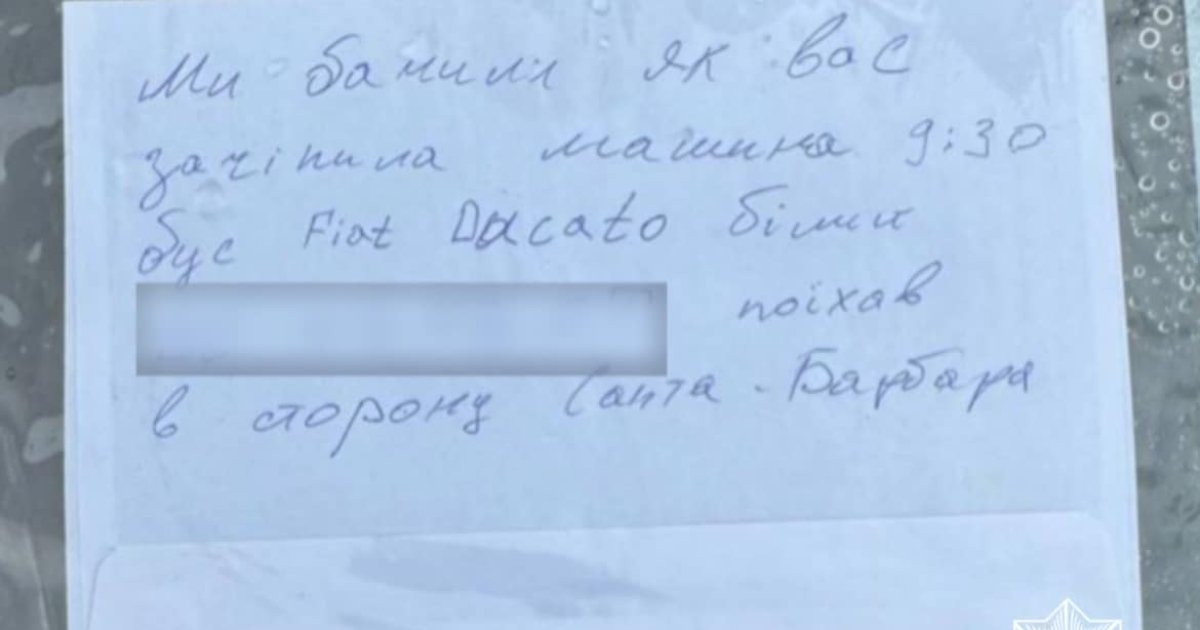 Ми бачили як вас
зачіпила машина 9:30
бус Fiat Ducato білий
поїхав
в сторону Санта-Барбара